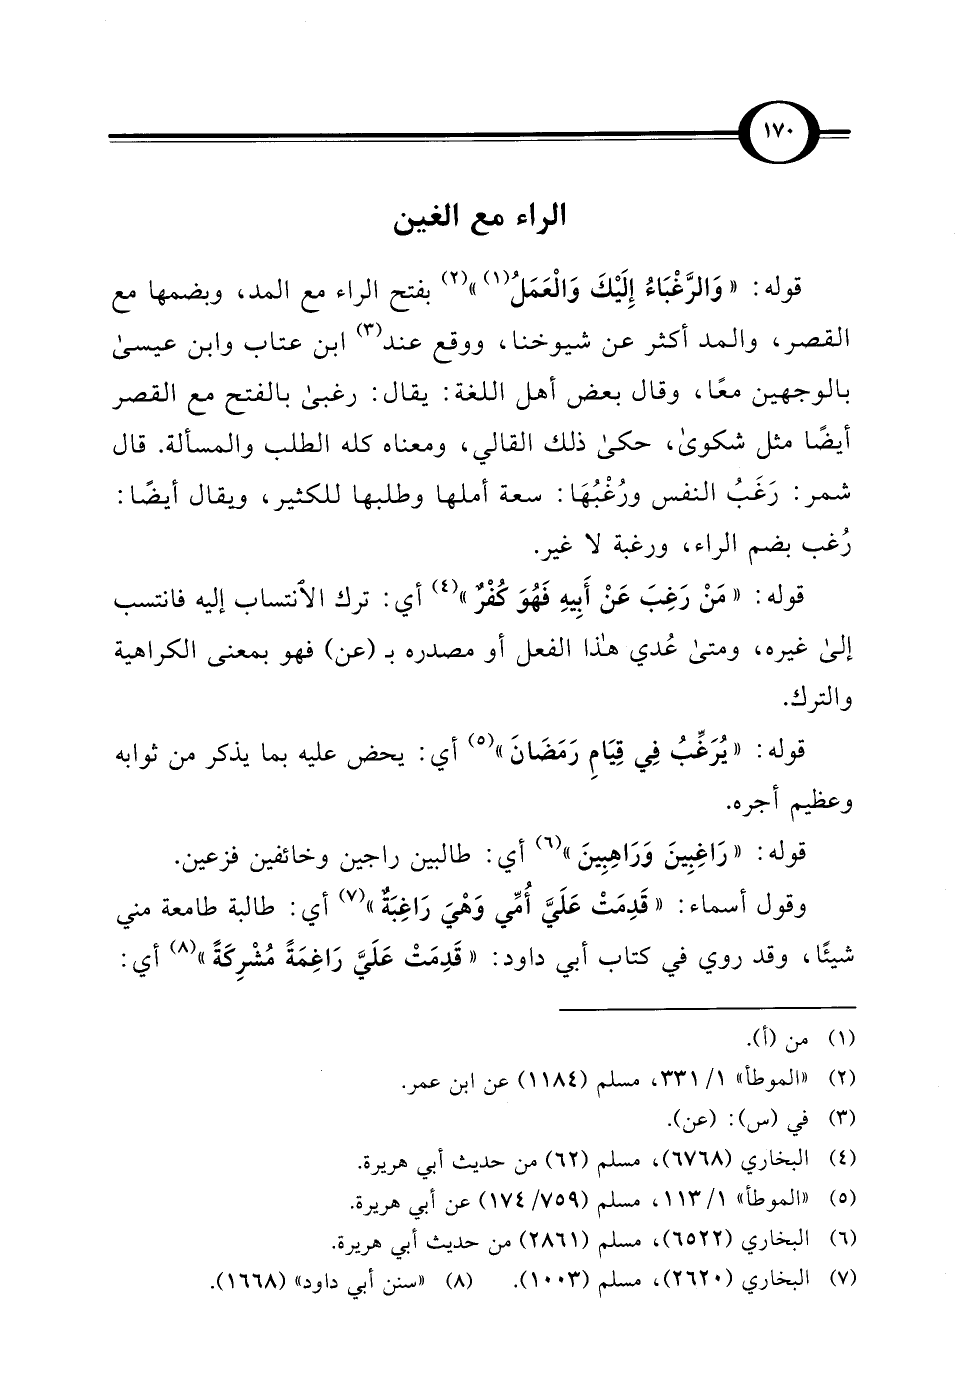 ١٧٠
الراء مع الغين
قوله: « وَالرَّغْبَاءُ إِلَيْكَ وَالْعَمَلُ(١) »(٢) بفتح الراء مع المد، وبضمها مع
القصر، والمد أكثر عن شيوخنا، ووقع عند(٣) ابن عتاب وابن عيسىٰ
بالوجهين معًا، وقال بعض أهل اللغة: يقال: رغبىٰ بالفتح مع القصر
أيضًا مثل شكوىٰ، حكىٰ ذلك القالي، ومعناه كله الطلب والمسألة. قال
شمر: رَغَبُ النفس ورُغْبُهَا: سعة أملها وطلبها للكثير، ويقال أيضًا:
رُغب بضم الراء، ورغبة لا غير.
قوله: « مَنْ رَغِبَ عَنْ أَبِيهِ فَهُوَ كُفْرٌ »(٤) أي: ترك الٱنتساب إليه فانتسب
إلىٰ غيره، ومتىٰ عُدي هٰذا الفعل أو مصدره بـ (عن) فهو بمعنى الكراهية
والترك.
قوله: « يُرَغِّبُ فِي قِيَامِ رَمَضَانَ »(٥) أي: يحض عليه بما يذكر من ثوابه
وعظيم أجره.
قوله: « رَاغِبِينَ وَرَاهِبِينَ »(٦) أي: طالبين راجين وخائفين فزعين.
وقول أسماء: « قَدِمَتْ عَلَيَّ أُمِّي وَهْيَ رَاغِبَةٌ »(٧) أي: طالبة طامعة مني
شيئًا، وقد روي في كتاب أبي داود: « قَدِمَتْ عَلَيَّ رَاغِمَةً مُشْرِكَةً »(٨) أي:
(١) من (أ).
(٢) «الموطأ» ١/ ٣٣١، مسلم (١١٨٤) عن ابن عمر.
(٣) في (س): (عن).
(٤) البخاري (٦٧٦٨)، مسلم (٦٢) من حديث أبي هريرة.
(٥) «الموطأ» ١/ ١١٣، مسلم (٧٥٩/ ١٧٤) عن أبي هريرة.
(٦) البخاري (٦٥٢٢)، مسلم (٢٨٦١) من حديث أبي هريرة.
(٧) البخاري (٢٦٢٠)، مسلم (١٠٠٣). (٨) «سنن أبي داود» (١٦٦٨).